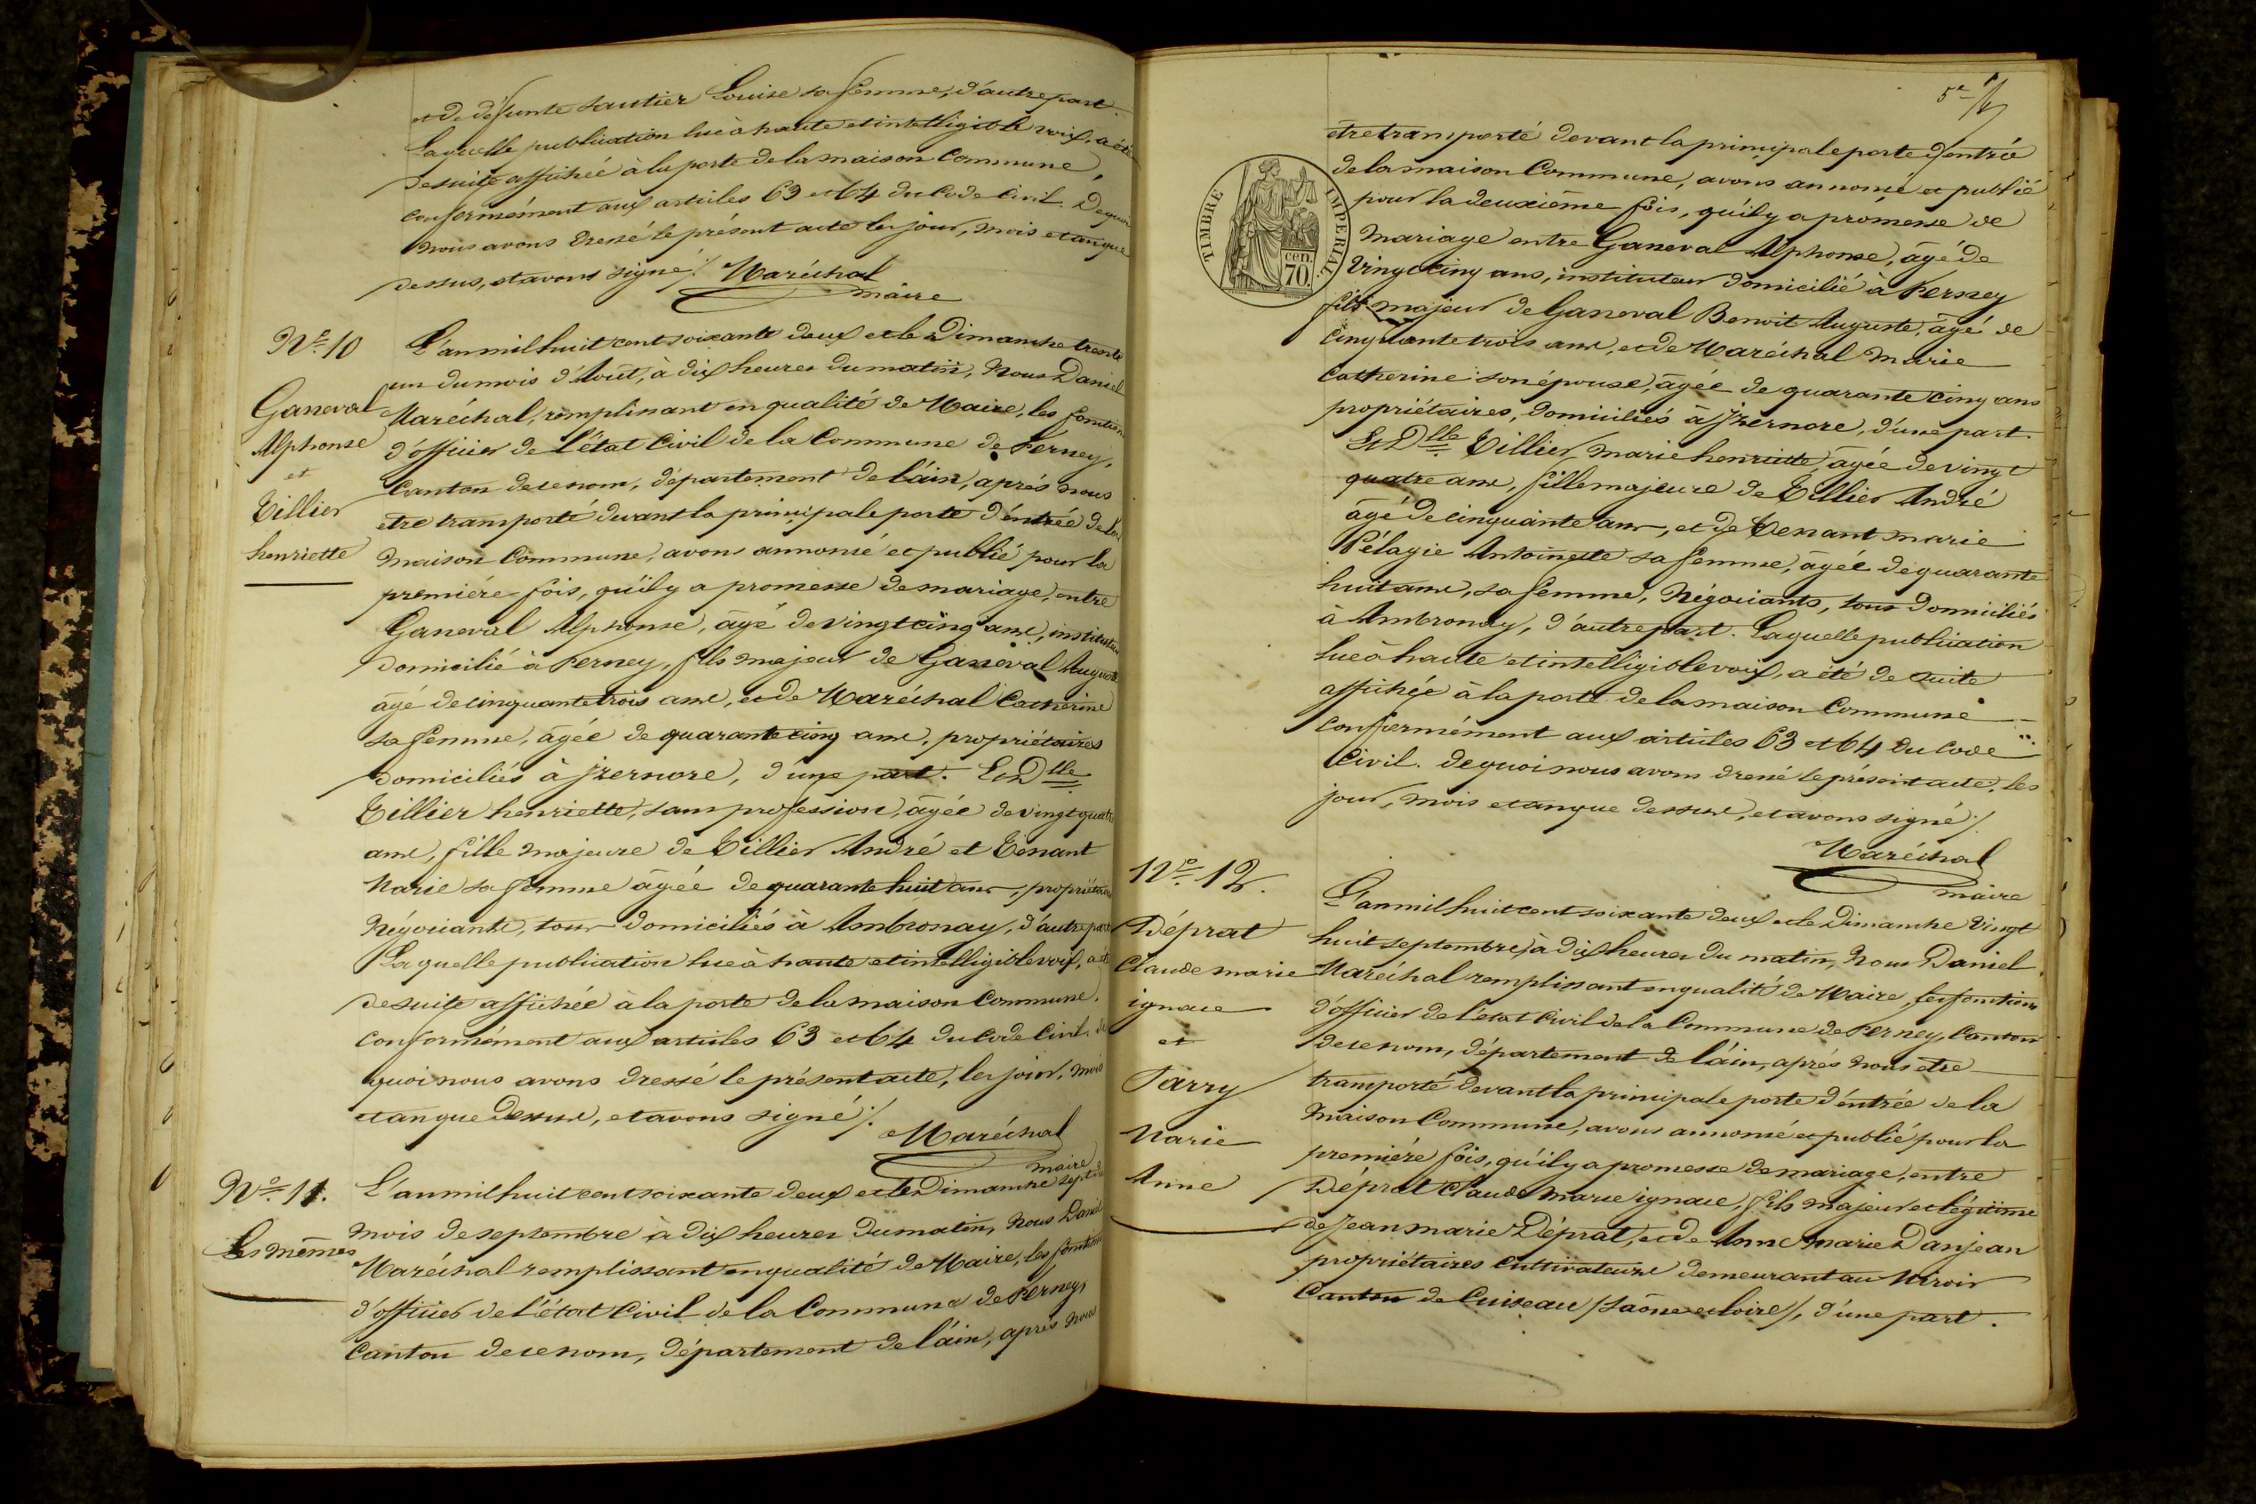 et de défunte Sautier Louise sa femme, d'autre part.
Laquelle publication lue à haute et intelligible voix, a été
de suite affichée à la porte de la maison Commune,
conformément aux articles 63 et 64 du Code Civil. De quoi
nous avons dressé le présent acte les jour, mois et an que
dessus, et avons signé ./. Maréchal
maire
N° 10
Ganeval
Alphonse
et
Tillier
henriette
L'an mil huit cent soixante deux et le Dimanche trente
un du mois d'Août, à dix heures du matin, Nous Daniel
Maréchal, remplissant en qualité de Maire, les fonctions
d'officier de l'état Civil de la Commune de Ferney,
Canton de ce nom, département de l'áin, aprés nous
etre transporté devant la principale porte d'éntrée de la
maison Commune, avons annoncé et publié pour la
premiére fois, qu'il y a promesse de mariage, entre
Ganeval Alphonse, âgé de vingt cinq ans, instituteur
domicilié à Ferney, fils majeur de Ganeval Auguste
âgé de cinquante trois ans, et de Maréchal Catherine
sa femme, âgée de quarante cinq ans, propriétaires
domiciliés à Izernore, d'une part. Et Dlle
Tillier henriette, sans profession, âgée de vingt quatre
ans, fille majeure de Tillier André et Tenant
Marie sa femme âgée de quarante huit ans, propriétaires
Négociants, tous domiciliés à Ambronay, d'autre part
Laquelle publication lue à haute et intelligible voix, a été
de suite affichée à la porte de la maison Commune,
conformément aux articles 63 et 64 du Code Civil. de
quoi nous avons dressé le présent acte, les jour, mois
et an que dessus, et avons signé ./.
Maréchal
maire
N° 11.
Les Mêmes
L'an mil huit cent soixante deux et le Dimanche sept du
mois de septembre à dix heures du matin, Nous Daniel
Maréchal remplissant en qualité de Maire, les fonctions
d'officier de l'état Civil de la Commune de Ferney,
Canton de ce nom, département de l'áin, aprés nous
5e
TIMBRE IMPERIAL.
cen.
70.
etre transporté devant la principale porte d'entrée
de la maison Commune, avons annoncé et publié
pour la deuxième fois, qu'il y a promesse de
Mariage entre Ganeval Alphonse, âgé de
Vingt cinq ans, instituteur domicilié à Ferney
fils majeur de Ganeval Benoit Auguste, âgé de
Cinquante trois ans, et de Maréchal Marie
Catherine son épouse, âgée de quarante cinq ans
propriétaires, domiciliés à Izernore, d'une part.
Et Dlle Tillier marie henriette, âgée de vingt
quatre ans, fille majeure de Tillier André
âgé de cinquante ans, et de Tenant marie
Pélagie Antoinette sa femme, âgée de quarante
huit ans, sa femme, Négociants, tous domiciliés
à Ambronay, d'autre part. Laquelle publication
lue à haute et intelligible voix, a été de suite
affichée à la porte de la maison Commune
conformément aux articles 63 et 64 du Code
Civil. de quoi nous avons dressé le présent acte, les
jour, mois et an que dessus, et avons signé ./.
Maréchal
maire
N° 12.
Déprat
Claude marie
ignace
et
Parry
Marie
Anne
L'an mil huit cent soixante deux et le Dimanche Vingt
huit septembre, à dix heures du matin, Nous Daniel
Maréchal remplissant en qualité de Maire, les fonctions
d'officier de l'état Civil de la Commune de Ferney, Canton
de ce nom, département de l'áin, aprés nous etre
transporté devant la principale porte d'éntrée de la
Maison Commune, avons annoncé et publié pour la
premiére fois, qu'il y a promesse de mariage, entre
Déprat Claude Marie ignace, fils majeur et légitime
de Jean marie Déprat, et de Anne marie Danjean
propriétaires Cultivateurs demeurant au Miroir
Canton de Cuiseau (Saône et Loire), d'une part.